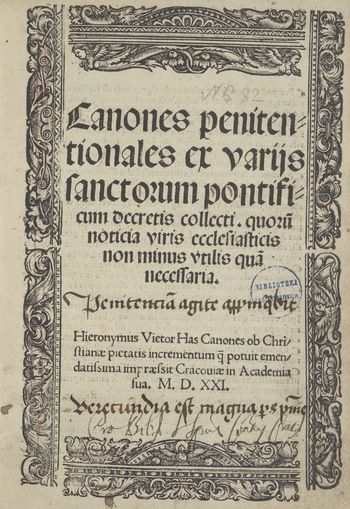 Canones peniten⸗
tionales ex varijs
sanctorum pontifi⸗
cum decretis collecti. quorũ
noticia viris ecclesiasticis
non minus vtilis quã
necessaria.
BIBLIOTEKA
Penitenciã agite
Hieronymus Vietor Has Canones ob Chri⸗
stianæ pietatis incrementum q̃ potuit emen⸗
datissima impræssit Cracouiæ in Academia
sua. M. D. XXI.
Verecundia est magna ps